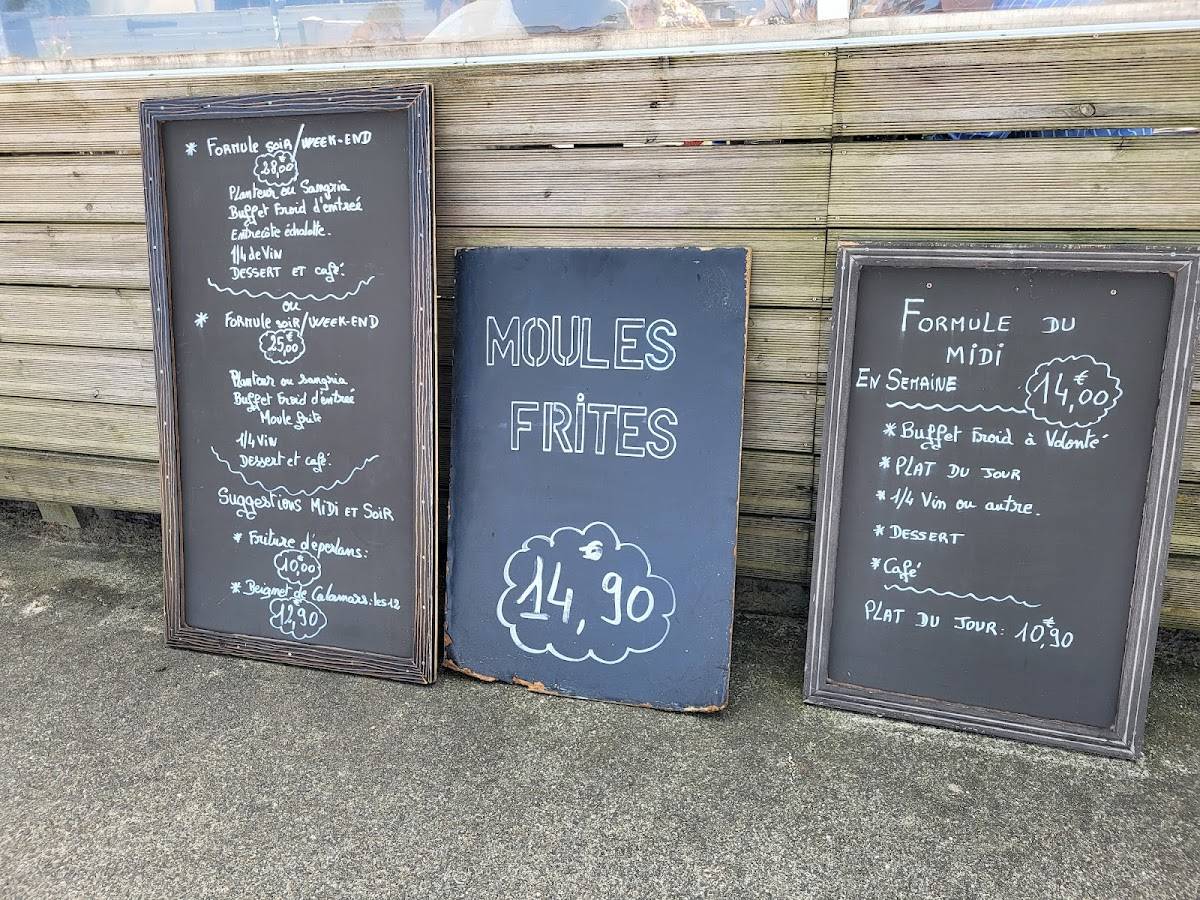 * Formule soir/week-end
28,00€
Planteur ou Sangria
Buffet Froid d'entreé
Entrecôte échalotte.
1/4 de Vin
Dessert et café.
ou
* Formule soir/week-end
25,00€
Planteur ou sangria
Buffet Froid d'entreé
Moule frite
1/4 Vin
Dessert et café.
Suggestions Midi et Soir
* Friture d'éperlans:
10,00€
* Beignet de Calamars: les 12
12,90€
MOULES
FRITES
14,90€
Formule du
midi
En Semaine
14,00€
* Buffet Froid à Volonté
* Plat du jour
* 1/4 Vin ou autre.
* Dessert
* Café
Plat du jour: 10,90€